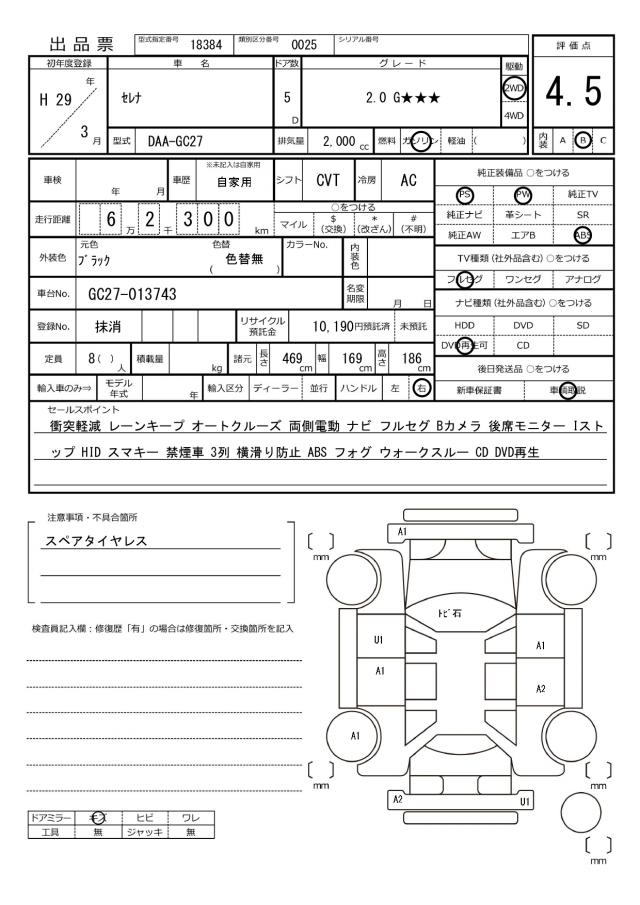 出品票
型式指定番号 18384 類別区分番号 0025 シリアル番号
評価点
4.5
内装 A B C
初年度登録 車名 ドア数 グレード 駆動
H 29 年 3 月
セレナ 5 D 2.0 G★★★ 2WD
4WD
型式 DAA-GC27 排気量 2,000 cc 燃料 ガソリン 軽油 ( )
車検 年 月 車歴 ※未記入は自家用 自家用 シフト CVT 冷房 AC
走行距離 6 万 2 千 3 0 0 km ○をつける
マイル $(交換) *(改ざん) #(不明)
外装色 元色 ブラック 色替 ( 色替無 ) カラーNo. 内装色
車台No. GC27-013743 名変期限 月 日
登録No. 抹消 リサイクル預託金 10,190円預託済 未預託
定員 8( )人 積載量 kg 諸元 長さ 469cm 幅 169cm 高さ 186cm
輸入車のみ⇒ モデル年式 年 輸入区分 ディーラー 並行 ハンドル 左 右
純正装備品 ○をつける
PS PW 純正TV
純正ナビ 革シート SR
純正AW エアB ABS
TV種類(社外品含む) ○をつける
フルセグ ワンセグ アナログ
ナビ種類(社外品含む) ○をつける
HDD DVD SD
DVD再生可 CD
後日発送品 ○をつける
新車保証書 車輌取説
セールスポイント
衝突軽減 レーンキープ オートクルーズ 両側電動 ナビ フルセグ Bカメラ 後席モニター Iスト
ップ HID スマキー 禁煙車 3列 横滑り防止 ABS フォグ ウォークスルー CD DVD再生
注意事項・不具合箇所
スペアタイヤレス
検査員記入欄:修復歴「有」の場合は修復箇所・交換箇所を記入
ドアミラー キズ ヒビ ワレ
工具 無 ジャッキ 無
A1
[ ] mm
[ ] mm
トビ石
U1
A1
A1
A2
A1
[ ] mm
[ ] mm
A2
U1
[ ] mm